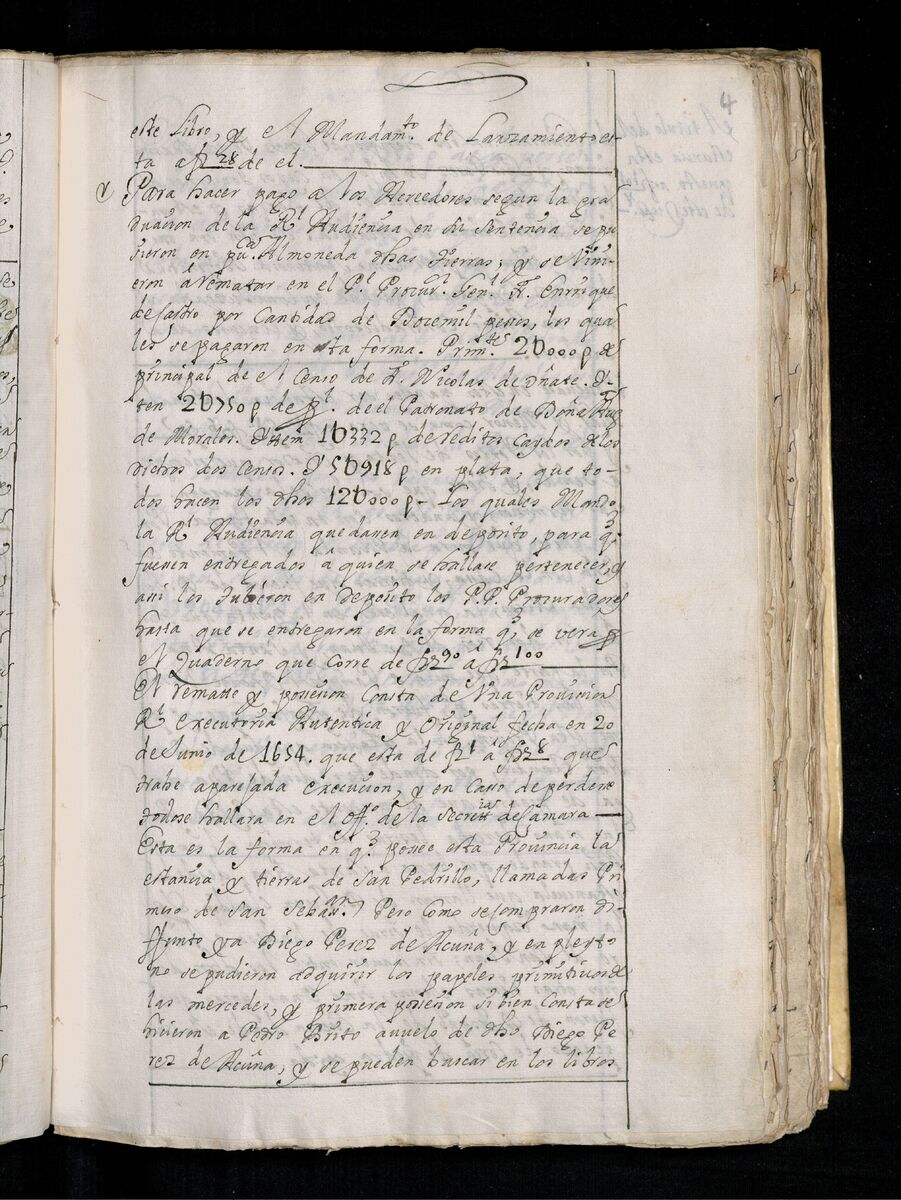 4
este Libro, y el Mandam.to de Lanzamiento es-
ta a f 28 de el.
Y Para hacer pago a los Acreedores segun la gra
duacion de la Rl Audiencia en su sentencia se pu
sieron en pu.ca Almoneda dhas tierras, y se vini-
eron a rematar en el P.e Procur.r Gen.l F. Enrrique
de Castro por Cantidad de Docemil pesos, los qua
les se pagaron en esta forma. Prim.te 2U000 p de
principal de el Censo de D. Nicolas de Oñate. I-
ten 2U750 p de pl. de el Patronato de Doña
de Morales. Ittem 1U332 p de reditos caydos de los
dichos dos Censos. I 5U918 p en plata, que to-
dos hacen los dhos 12U000 p- Los quales Mando
la Rl Audiencia quedaren en deposito, para q
fuesen entregados à quien se hallase pertenecer, y
asi los tubieron en deposito los P.P. Procuradores
hasta que se entregaron en la forma q se vera
el Quaderno que corre de f 90 a f 100
El remate y possesion Consta de Vna Provision
Rl executoria Autentica y Original fecha en 20
de Junio de 1654. que esta de f 1 a f 28 que
trahe aparejada execucion, y en caso de perderse
todo se hallara en el Off.o de la Secret.ria de Camara
Esta es la forma en q posee esta Provincia la
estancia y tierras de San Pedrillo, llamadas Pri
mero de San Sebas.n) Pero como se compraron di-
ffunto ya Diego Perez de Acuña, y en pleyto
no se pudieron adquirir los papeles primitivos de
las mercedes, y primera possesion si bien consta se
hicieron a Pedro Brito avuelo de dho Diego Pe
rez de Acuña, y se pueden buscar en los libros